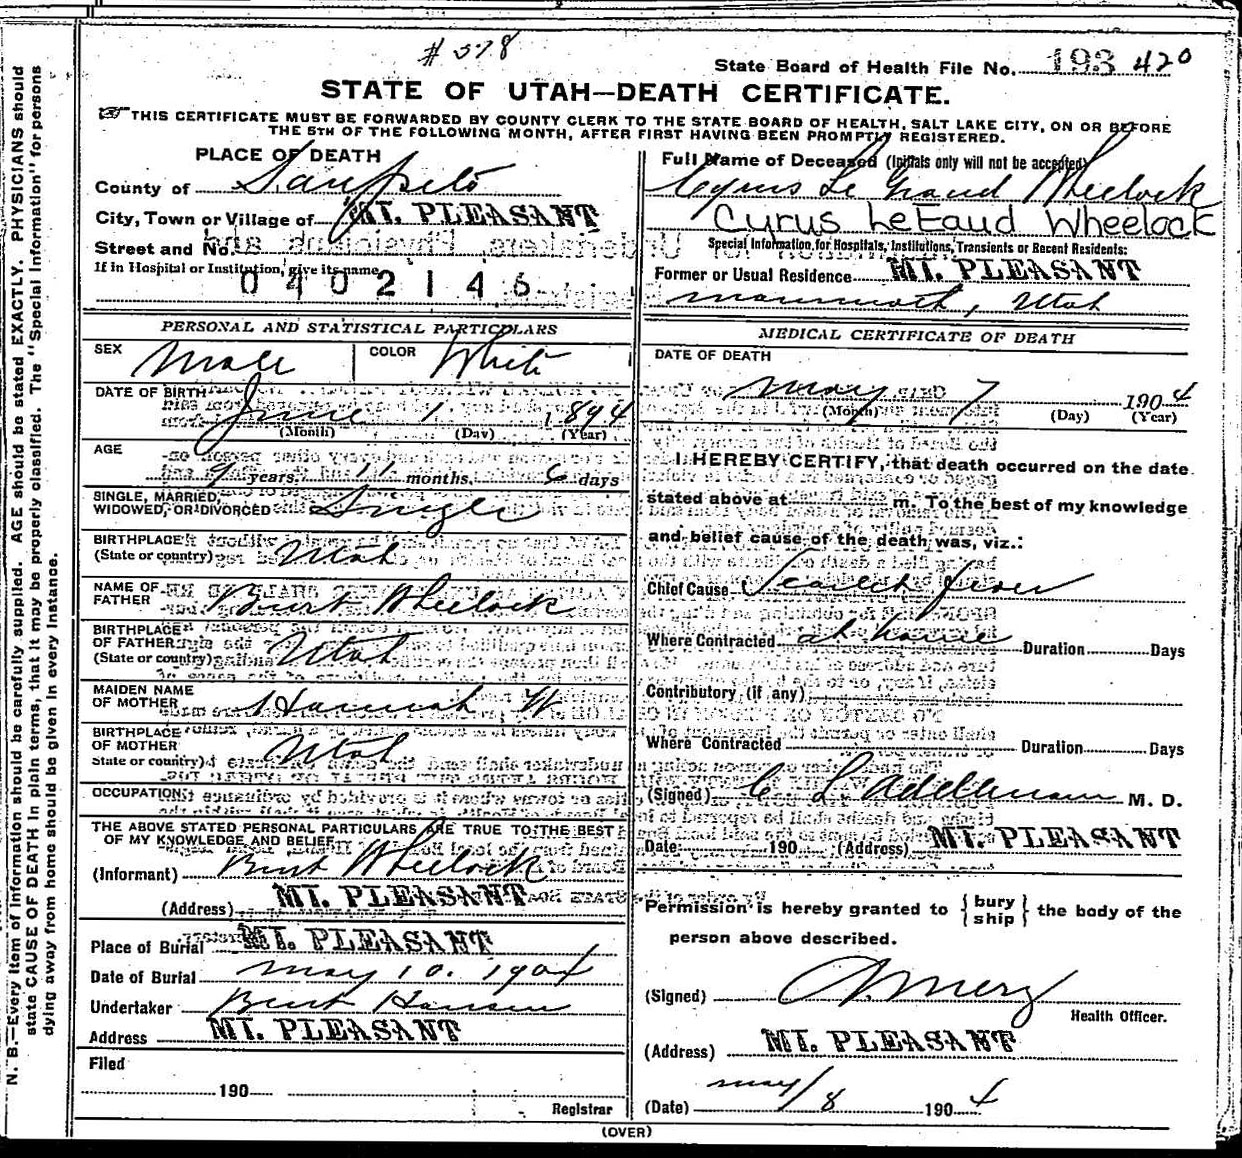 # 378
State Board of Health File No. 193 420
STATE OF UTAH—DEATH CERTIFICATE.
THIS CERTIFICATE MUST BE FORWARDED BY COUNTY CLERK TO THE STATE BOARD OF HEALTH, SALT LAKE CITY, ON OR BEFORE
THE 5TH OF THE FOLLOWING MONTH, AFTER FIRST HAVING BEEN PROMPTLY REGISTERED.
PLACE OF DEATH
County of Sanpete
City, Town or Village of MT. PLEASANT
Street and No.
If in Hospital or Institution, give its name
0402146
PERSONAL AND STATISTICAL PARTICULARS
SEX Male COLOR White
DATE OF BIRTH
June 1 1894
(Month) (Day) (Year)
AGE
9 years, 11 months, 6 days
SINGLE, MARRIED,
WIDOWED, OR DIVORCED Single
BIRTHPLACE
(State or country) Utah
NAME OF
FATHER Burt Wheelock
BIRTHPLACE
OF FATHER
(State or country) Utah
MAIDEN NAME
OF MOTHER Hannah W
BIRTHPLACE
OF MOTHER
State or country) Utah
OCCUPATION
THE ABOVE STATED PERSONAL PARTICULARS ARE TRUE TO THE BEST
OF MY KNOWLEDGE AND BELIEF
(Informant) Burt Wheelock
(Address) MT. PLEASANT
Place of Burial MT. PLEASANT
Date of Burial May 10. 1904
Undertaker Burt Hansen
Address MT. PLEASANT
Filed
190
Registrar
Full Name of Deceased (Initials only will not be accepted)
Cyrus Le Grand Wheelock
Cyrus LeEaud Wheelock
Special Information for Hospitals, Institutions, Transients or Recent Residents:
Former or Usual Residence MT. PLEASANT
Mammoth, Utah
MEDICAL CERTIFICATE OF DEATH
DATE OF DEATH
May 7 1904
(Month) (Day) (Year)
I HEREBY CERTIFY, that death occurred on the date
stated above at m. To the best of my knowledge
and belief cause of the death was, viz.:
Chief Cause Scarlet Fever
Where Contracted at home Duration Days
Contributory (if any)
Where Contracted Duration Days
(Signed) C L Adelman M. D.
Date 190 (Address) MT. PLEASANT
Permission is hereby granted to { bury
ship } the body of the
person above described.
(Signed)
Health Officer.
(Address) MT. PLEASANT
(Date) May/8 1904
(OVER)
N. B.—Every item of information should be carefully supplied. AGE should be stated EXACTLY. PHYSICIANS should
state CAUSE OF DEATH in plain terms, that it may be properly classified. The "Special Information" for persons
dying away from home should be given in every instance.